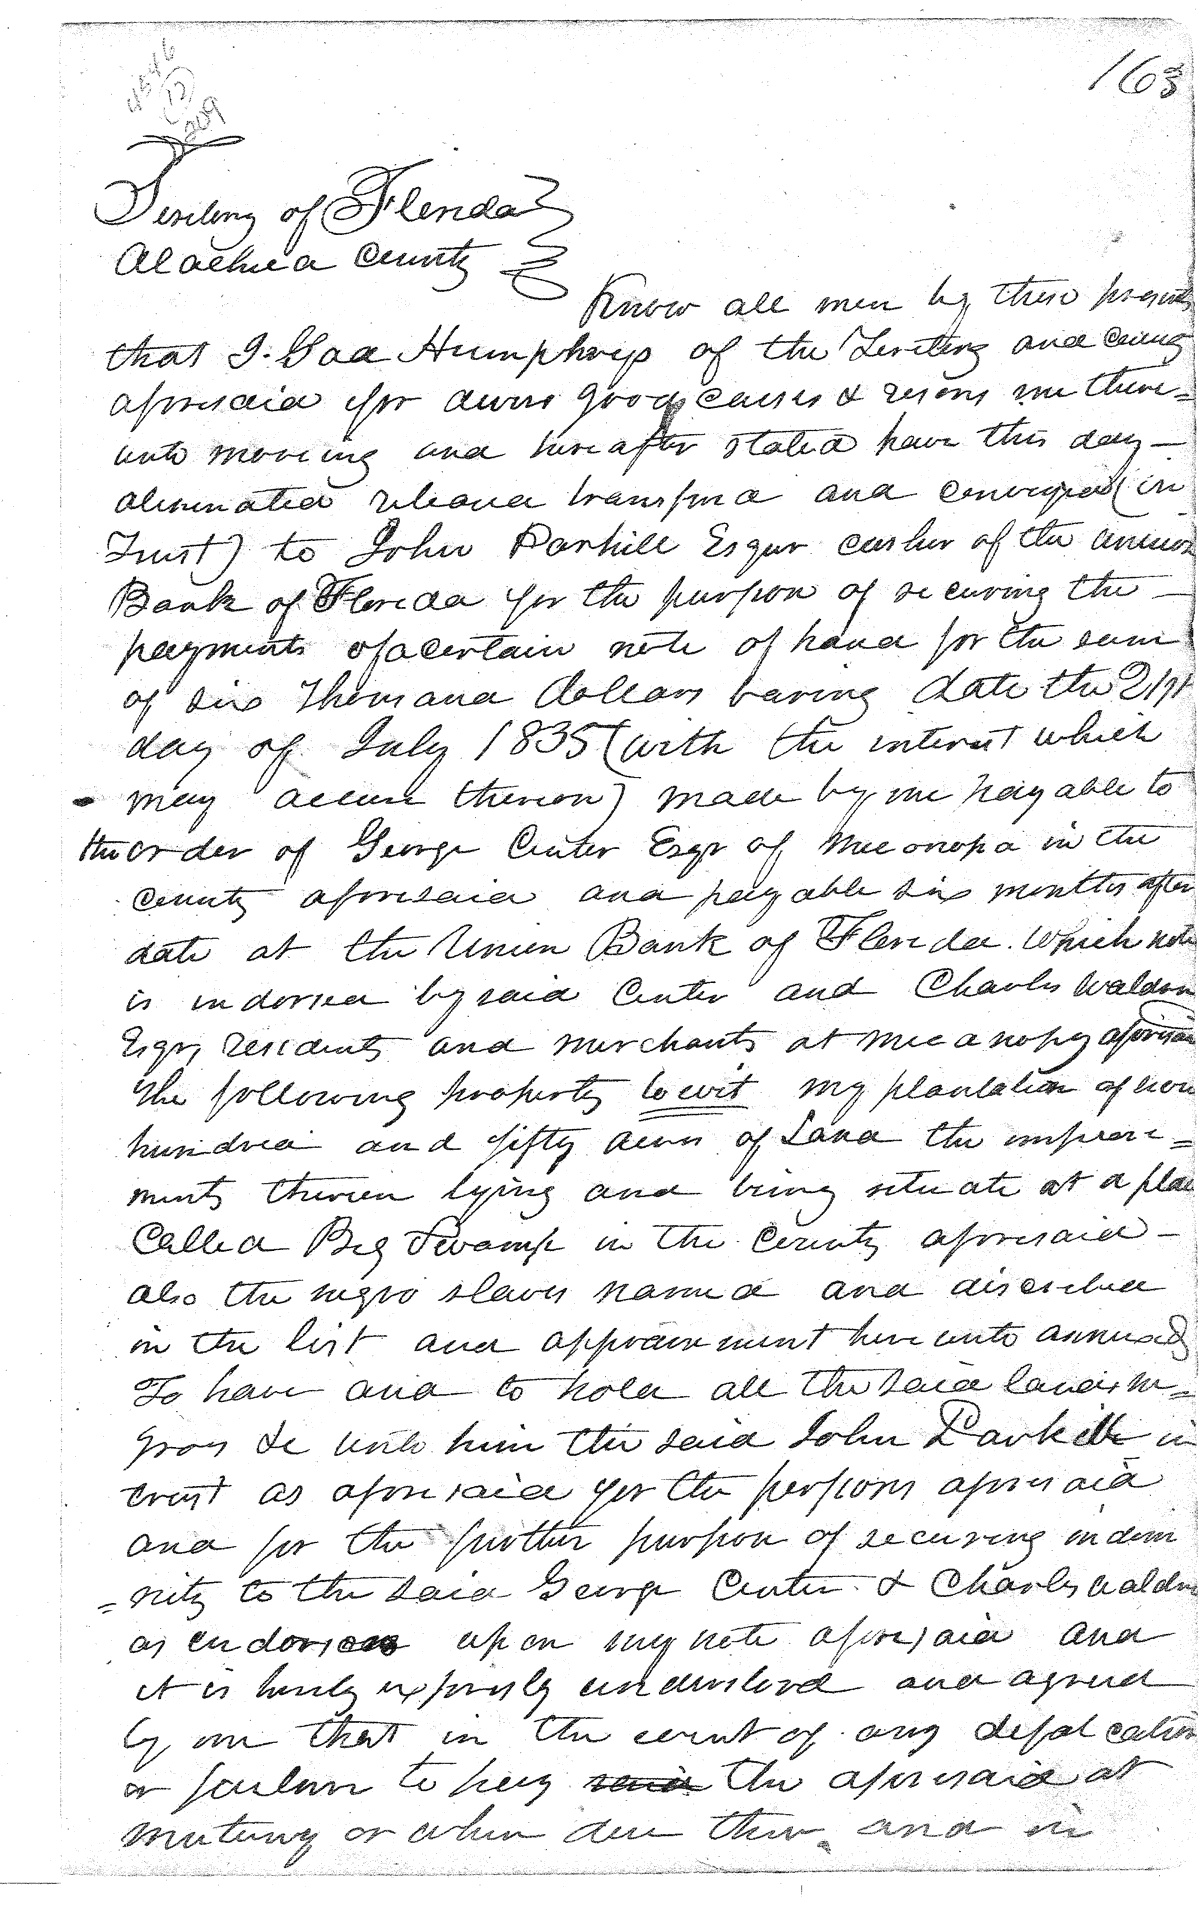 163
Territory of Florida
Alachua County
Know all men by these presents
that I. Gad Humphreys of the Territory and County
aforesaid for divers good causes & resons me there=
unto moveing and hereafter stated have this day —
alienated released transferd and conveyed (in
Trust) to John Parkill Esqur casher of the union
Bank of Florida for the purpose of securing the —
payments of a certain note of hand for the sum
of six Thousand dollars baring date the 21st
day of July 1835 (with the interest which
may accure thereon) made by me payable to
the order of George Center Esqr of Mecanopa in the
County aforesaid and payable six months after
date at the Union Bank of Florida. Which note
is indorsed by said Center and Charles Waldron
Esqrs residents and merchants at Mecanopy aforesaid
The following property to wit my plantation of
hundred and fifty acres of Land the improve=
ments thereon lying and being situate at a place
Called Big Swamp in the County aforesaid —
also the negro slaves named and discribed
in the list and appraisement hereunto annexed
To have and to hold all the said lands ne=
groes &c unto him the said John Parkill in
trust as aforesaid for the perposes aforesaid
and for the further purpose of securing indem
=nity to the said George Center & Charles Waldron
as endorsers upon my note aforesaid and
it is hereby expressly understood and agreed
by me that in the event of any defalcation
or failure to pay said the aforesaid at
muturity or when due then and in